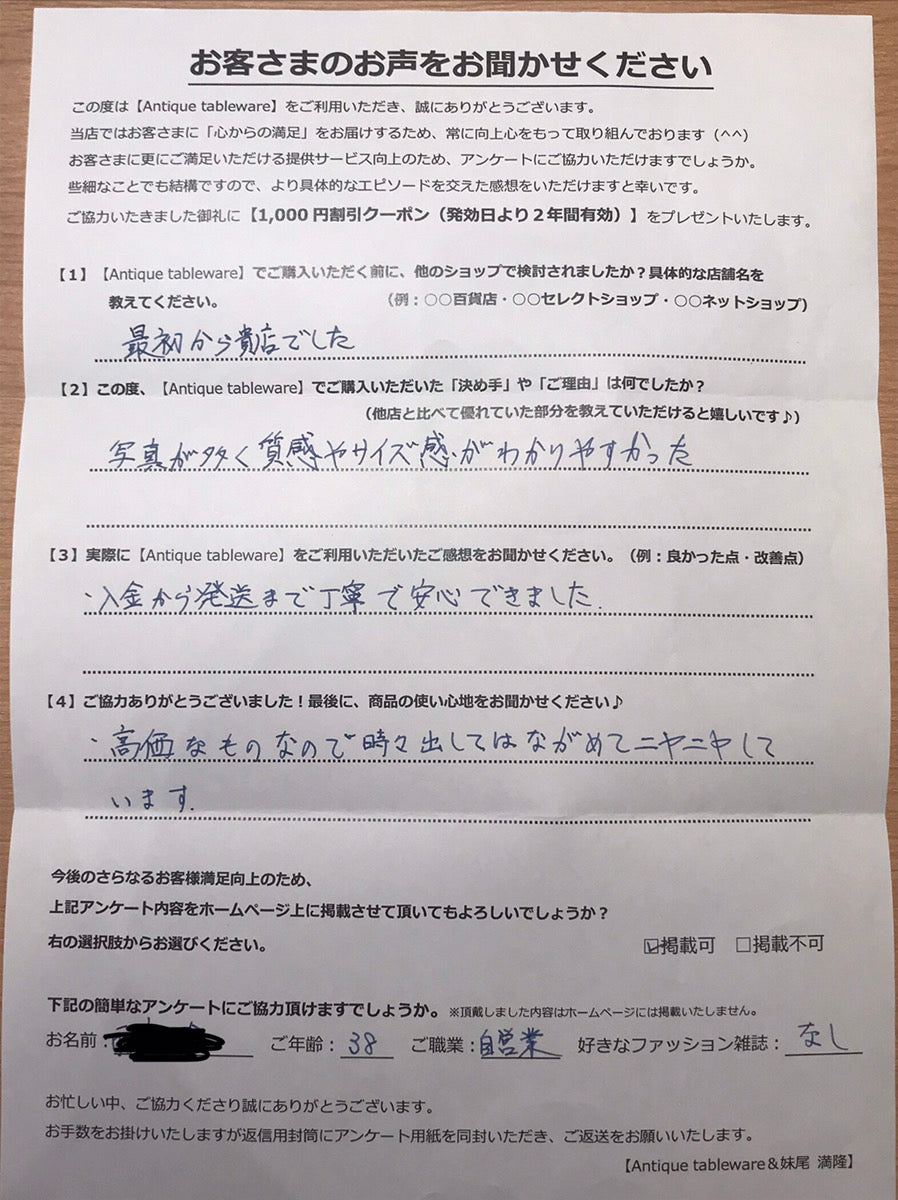 お客さまのお声をお聞かせください
この度は【Antique tableware】をご利用いただき、誠にありがとうございます。
当店ではお客さまに「心からの満足」をお届けするため、常に向上心をもって取り組んでおります（^^）
お客さまに更にご満足いただける提供サービス向上のため、アンケートにご協力いただけますでしょうか。
些細なことでも結構ですので、より具体的なエピソードを交えた感想をいただけますと幸いです。
ご協力いたきました御礼に【1,000円割引クーポン（発効日より２年間有効）】をプレゼントいたします。
【1】【Antique tableware】でご購入いただく前に、他のショップで検討されましたか？具体的な店舗名を
教えてください。 （例：○○百貨店・○○セレクトショップ・○○ネットショップ）
最初から貴店でした
【2】この度、【Antique tableware】でご購入いただいた「決め手」や「ご理由」は何でしたか？
（他店と比べて優れていた部分を教えていただけると嬉しいです♪）
写真が多く質感やサイズ感がわかりやすかった
【3】実際に【Antique tableware】をご利用いただいたご感想をお聞かせください。（例：良かった点・改善点）
・入金から発送まで丁寧で安心できました.
【4】ご協力ありがとうございました！最後に、商品の使い心地をお聞かせください♪
・高価なものなので時々出してはながめてニヤニヤして
います.
今後のさらなるお客様満足向上のため、
上記アンケート内容をホームページ上に掲載させて頂いてもよろしいでしょうか？
右の選択肢からお選びください。 ☑掲載可 □掲載不可
下記の簡単なアンケートにご協力頂けますでしょうか。※頂戴しました内容はホームページには掲載いたしません。
お名前： ご年齢：38 ご職業：自営業 好きなファッション雑誌：なし
お忙しい中、ご協力くださり誠にありがとうございます。
お手数をお掛けいたしますが返信用封筒にアンケート用紙を同封いただき、ご返送をお願いいたします。
【Antique tableware＆妹尾 満隆】